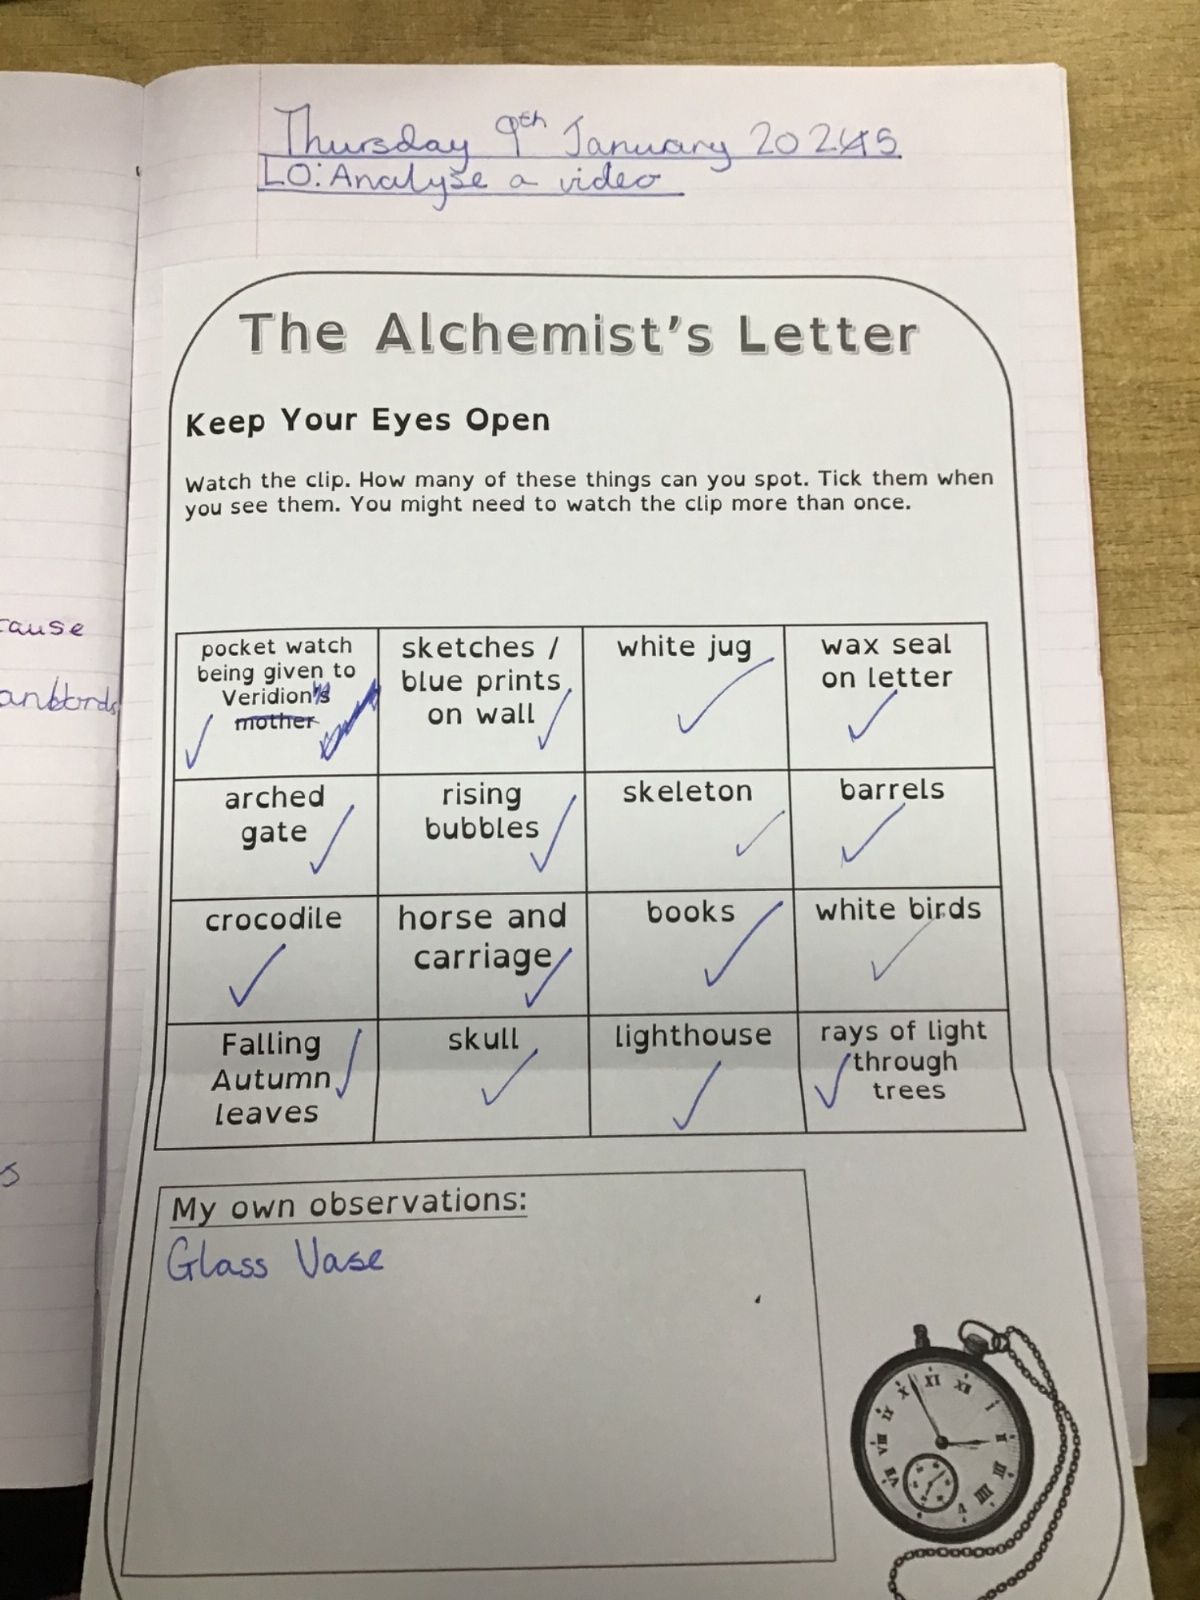 Thursday 9th January 2025
LO: Analyse a video
The Alchemist's Letter
Keep Your Eyes Open
Watch the clip. How many of these things can you spot. Tick them when
you see them. You might need to watch the clip more than once.
pocket watch
being given to
Veridion's
mother
sketches /
blue prints
on wall
white jug
wax seal
on letter
arched
gate
rising
bubbles
skeleton
barrels
crocodile
horse and
carriage
books
white birds
Falling
Autumn
leaves
skull
lighthouse
rays of light
through
trees
My own observations:
Glass Vase
X XI XII I II III IIII V VII VIII IX